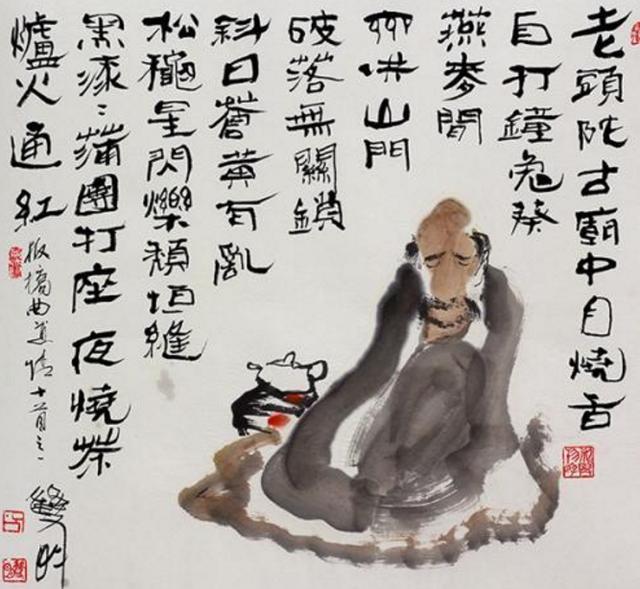 老頭陀古廟中自燒香
自打鐘兔葵
燕麥閒
齋供山門
破落無關鎖
斜日蒼黃有亂
松穐星閃爍頹垣縫
黑漆〻蒲團打座夜燒茶
爐火通紅
板橋曲道情十首之一